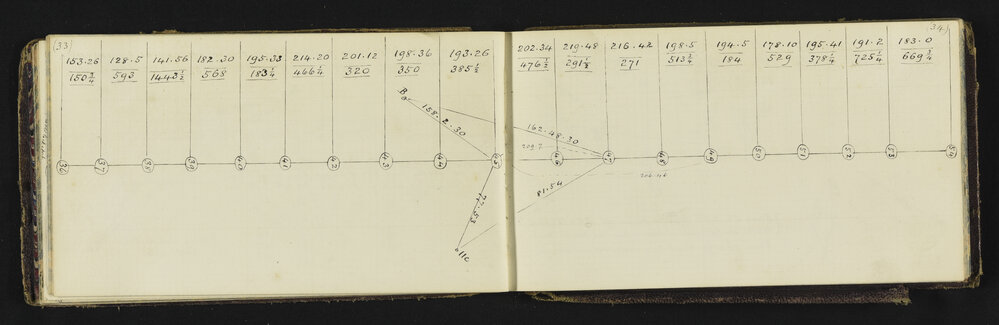 (33)
153.26 128.5 141.56 182.30 195.33 214.20 201.12 198.36 193.26
150 3/4 593 1443 1/2 568 183 1/4 466 1/4 320 350 385 1/2
B
158.2.30
36 37 38 39 40 41 42 43 44 45
77.53
11c
34)
202.34 219.48 216.42 198.5 194.5 178.10 195.41 191.2 183.0
476 1/2 291 1/2 271 513 3/4 184 529 378 1/4 725 1/4 669 3/4
162.48.30
209.7
46 47 48 49 50 51 52 53 54
206.46
81.54